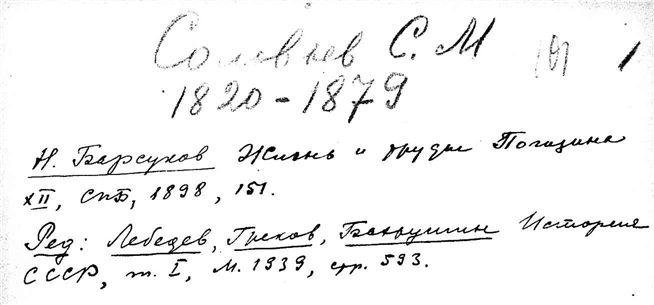 Соловьев С. М 1
1820-1879
Н. Барсуков Жизнь и труды Погодина
XII, СПБ, 1898, 151.
Ред: Лебедев, Греков, Бахрушин История
СССР, т. I, М. 1939, стр. 593.